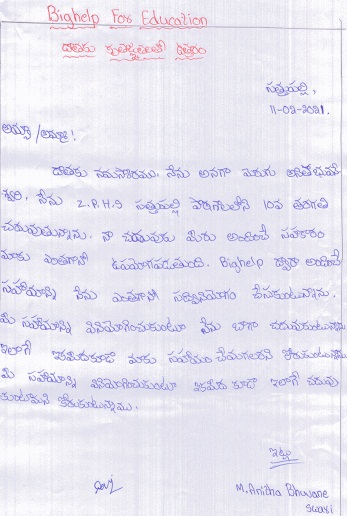 Bighelp For Education
దాతకు కృతజ్ఞతలతో ఉత్తరం
సత్రంపల్లి,
11-02-2021.
అమ్మా /అయ్యా!
దాతకు నమస్కారము. నేను అనగా మెరుగు అనితభువనే
శ్వరి. నేను Z.P.H.S సత్రంపల్లి పాఠశాలలోని 10వ తరగతి
చదువుతున్నాను. నా చదువుకు మీరు అందించే సహకారం
మాకు ఎంతగానో ఉపయోగపడుతుంది. Bighelp ద్వారా అందించే
సహాయాన్ని నేను ఎంతగానో సద్వినియోగం చేసుకుంటున్నాను.
మీ సహాయాన్ని వినియోగించుకుంటూ నేను బాగా చదువుకుంటున్నాను
ఇలాగే ఇకమీదకూడా మాకు సహాయం చేయగలరని కోరుకుంటున్నాను
మీ సహాయాన్ని వినియోగించుకుంటూ ఇకమీద కూడా ఇలాగే చదువు
కుంటామని కోరుకుంటున్నాము.
ఇట్లు
M. Anitha Bhuvane
swari